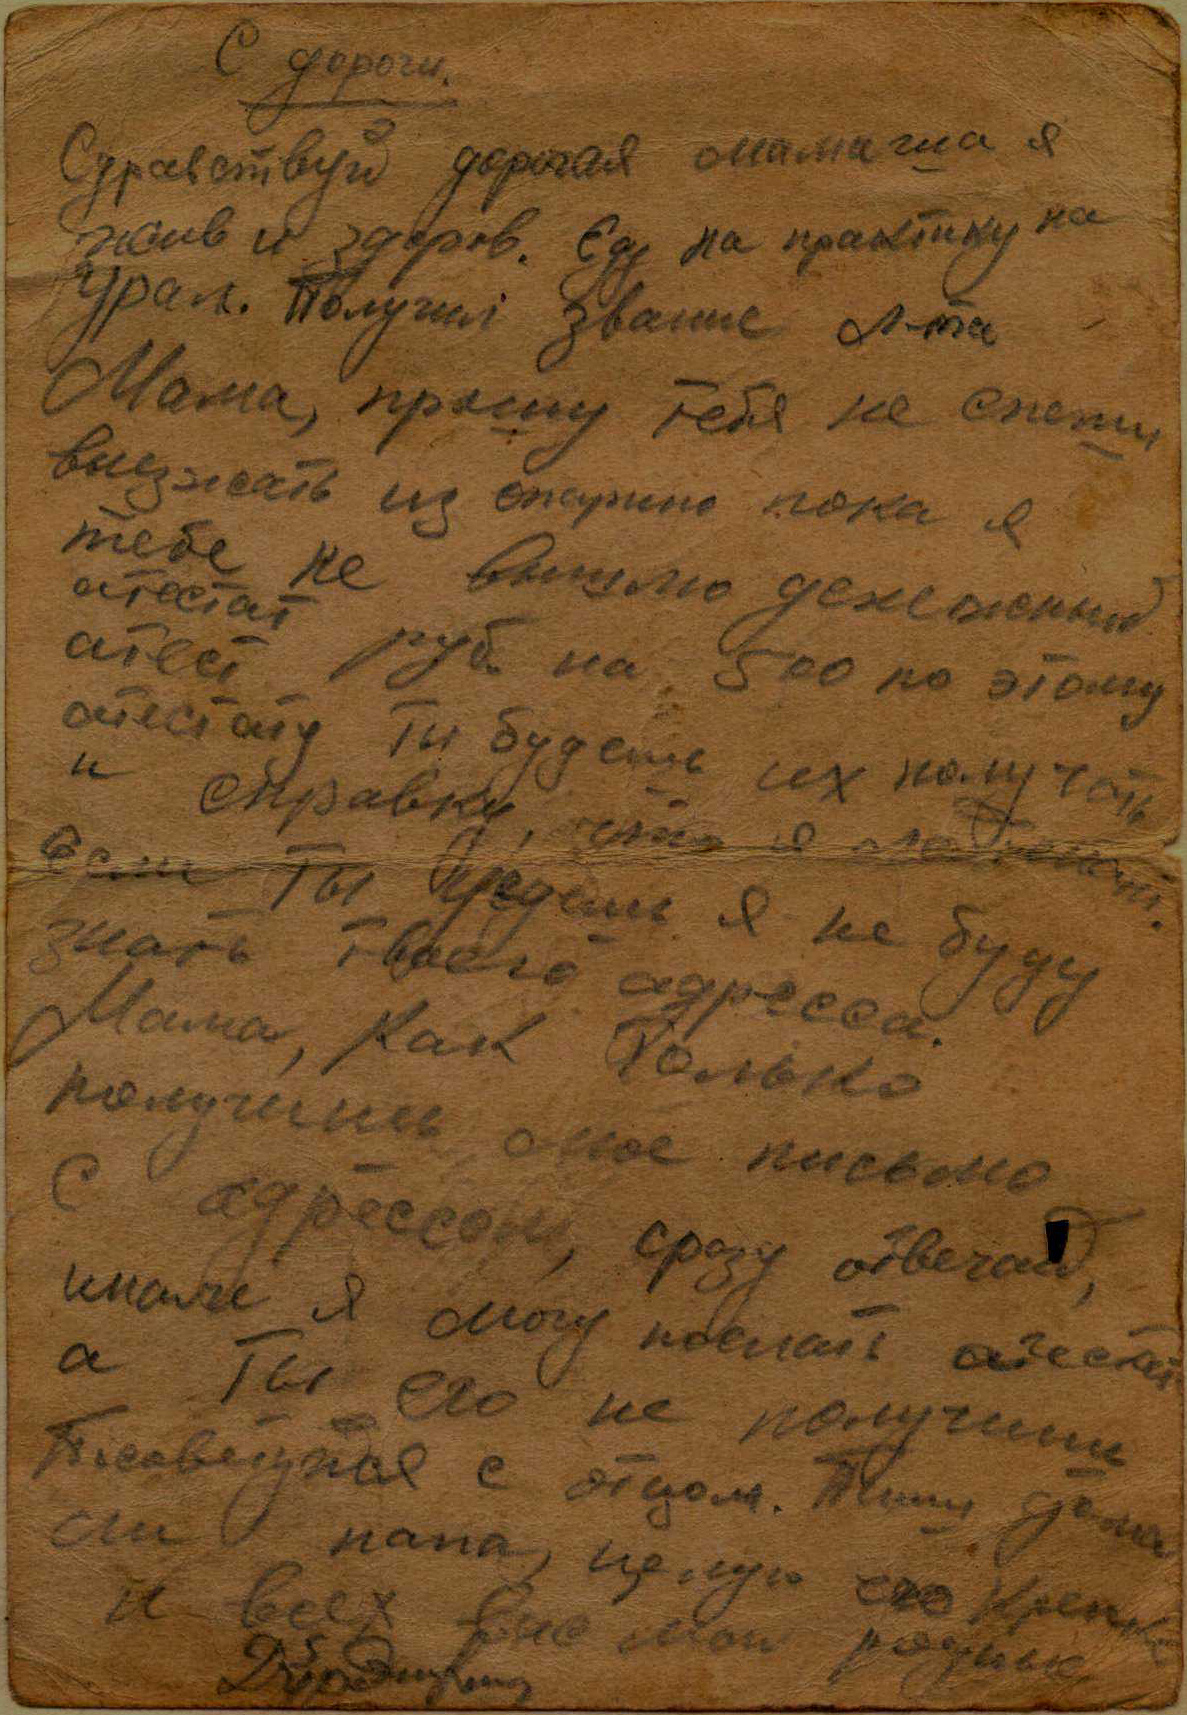 С дороги.
Сдравствуй дорогая мамаша я
жив и здоров. Еду на практику на
Урал. Получил звание л-та
Мама, прошу тебя не спеши
выезжать из пока я
тебе не вышлю денежный
атестат
атест руб. на 500 по этому
атестату ты будешь их получать
и справку, что я
Если ты уедешь я не буду
знать твоего адресса.
Мама, как только
получишь мое письмо
с адрессом, сразу отвечай,
иначе я могу послать атестат
а ты его не получишь
Посоветуйся с отцом. Пишу дома
ли папа, целую его крепко
и всех вас мои родные